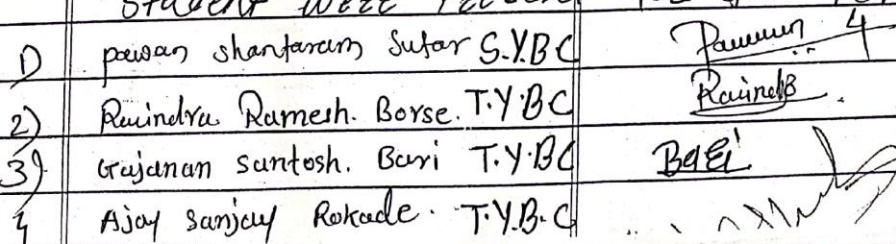 Student were
1) pawan shantaram Sutar S.Y.B C
2) Ravindra Ramesh. Borse. T.Y.B C RavindB.
3) Gajanan Santosh. Bari T.Y.B C Bari
4 Ajay Sanjay Rokade. T.Y.B.C